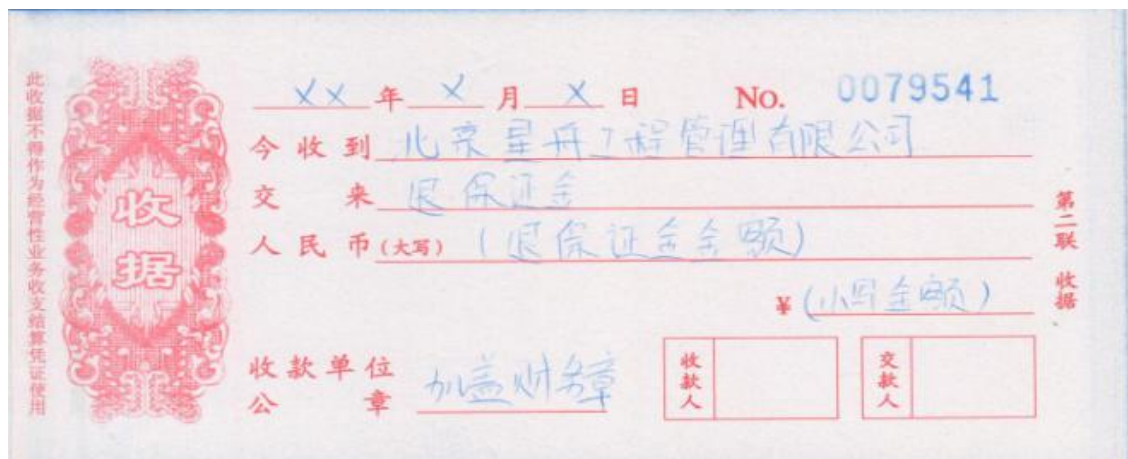 此收据不得作为经营性业务收支结算凭证使用
收据
XX 年 X 月 X 日 No. 0079541
今收到 北京星舟工程管理有限公司
交来 退保证金
人民币(大写) (退保证金金额)
¥ (小写金额)
收款单位公章 加盖财务章
收款人
交款人
第二联 收据